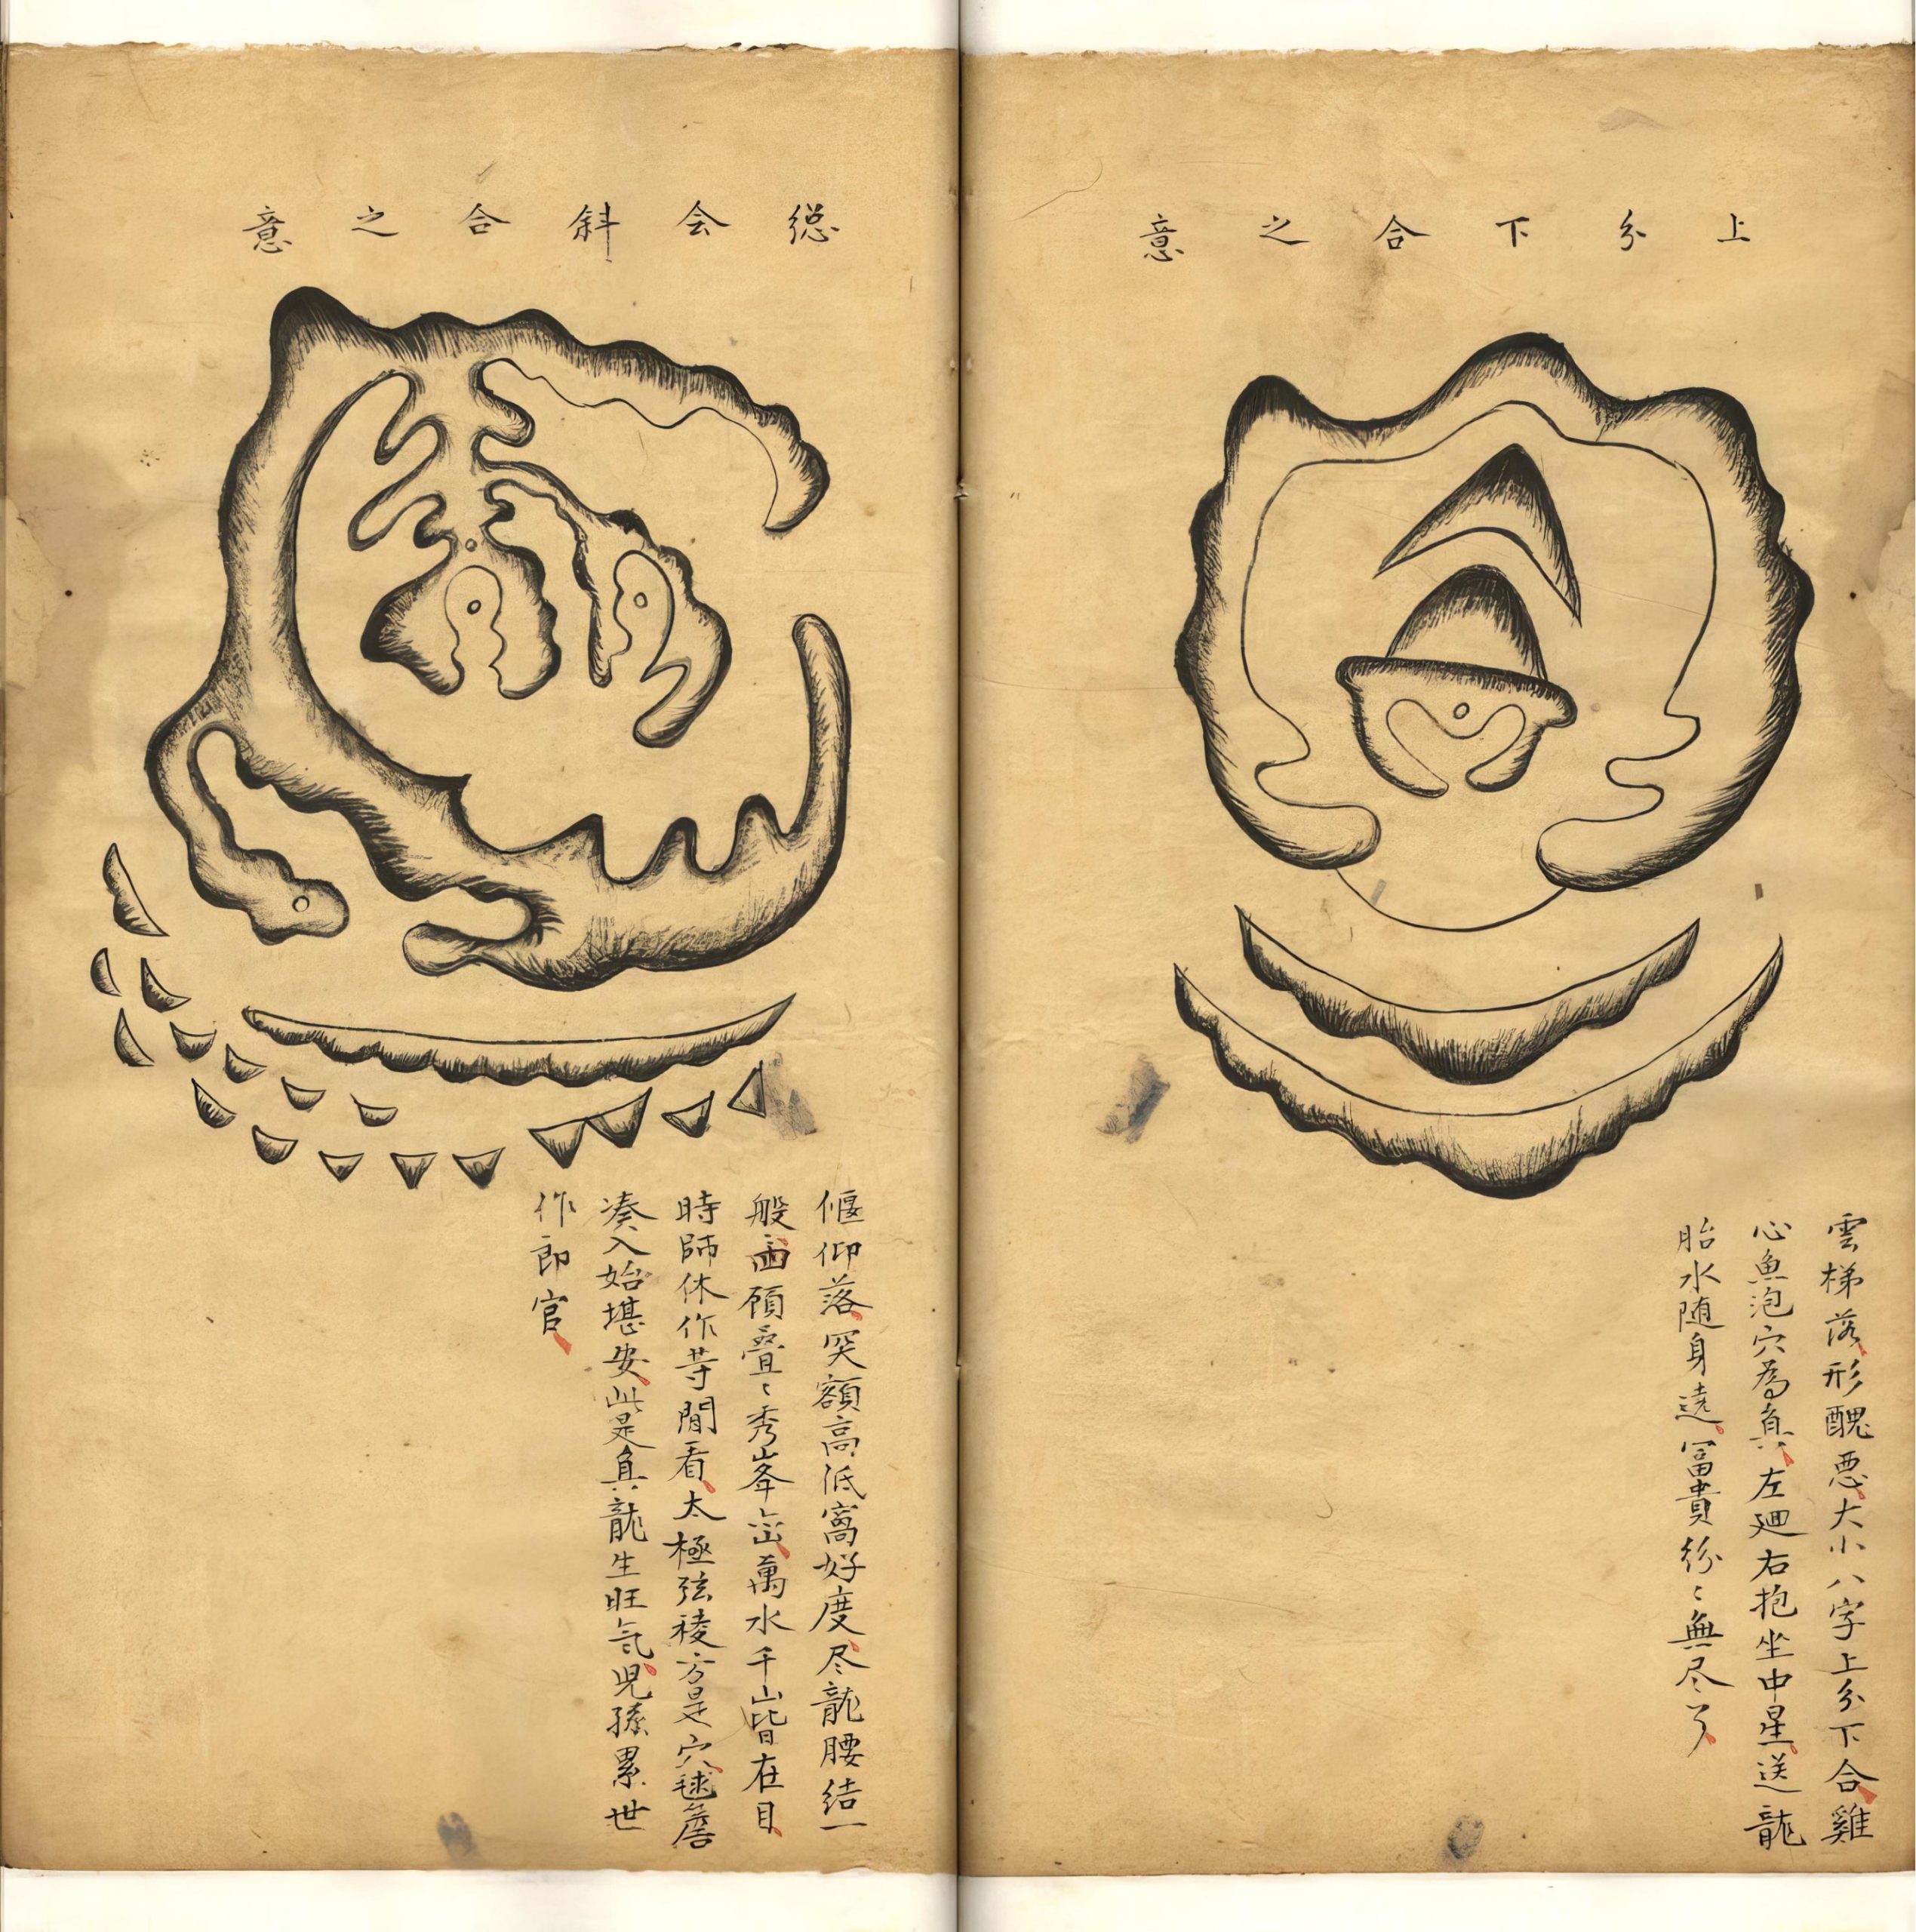 上分下合之意
雲梯落形醜惡大小八字上分下合雞
心魚泡穴為真左廻右抱坐中星送龍
胎水随身遶冨貴紛〻無尽了
緫会斜合之意
偃仰落突額高低窩好度尽龍腰結一
般面顧疊〻秀峯巒萬水千山皆在目
時師休作等閒看太極弦稜方是穴毬簷
凑入始堪安此是真龍生旺氣児孫累世
作郎官